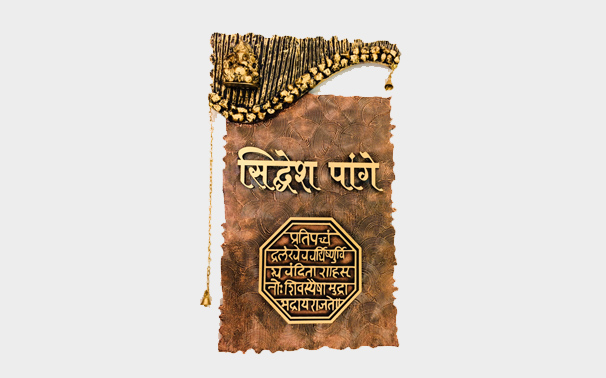 सिद्धेश पांगे
प्रतिपच्चं
द्रलेखेव वर्धिष्णुर्वि
श्व वंदिता शाहसू
नोः शिवस्यैषा मुद्रा
भद्राय राजते